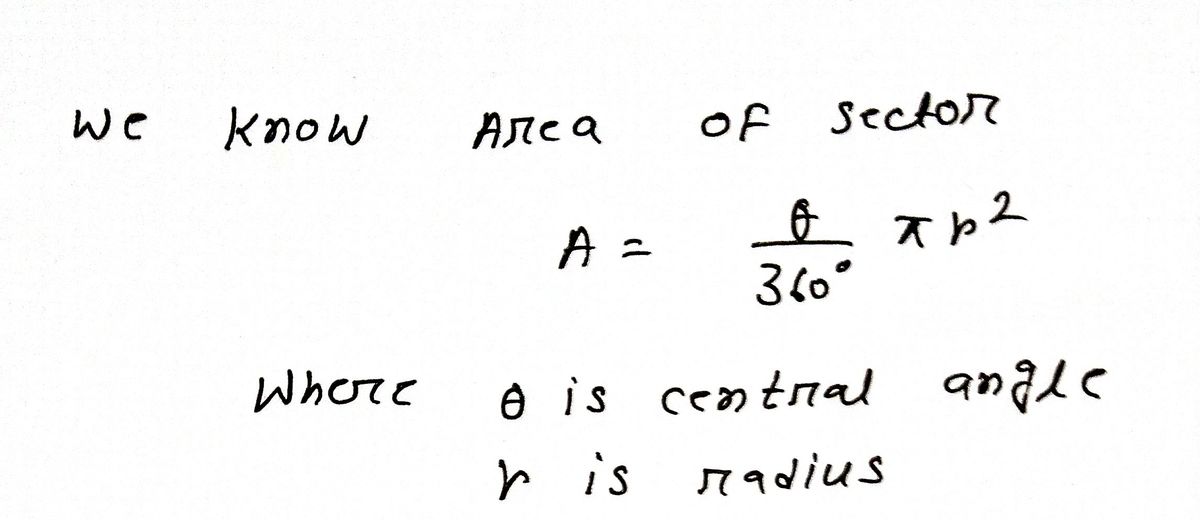 We know Area of sector
A = θ/360° πr²
Where θ is central angle
r is radius